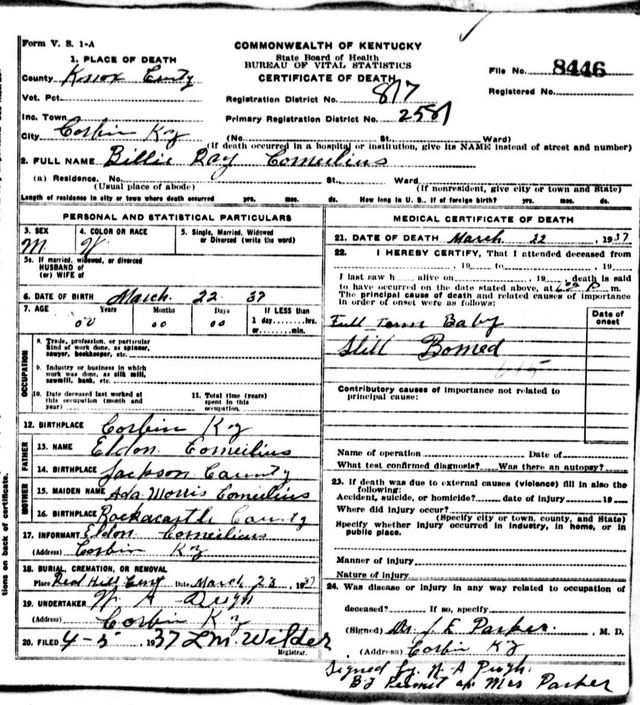 Form V. S. 1-A
COMMONWEALTH OF KENTUCKY
State Board of Health
BUREAU OF VITAL STATISTICS
CERTIFICATE OF DEATH
File No. 8446
Registered No.
1. PLACE OF DEATH
County Knox County
Vot. Pct.
Inc. Town
City Corbin Ky
Registration District No. 817
Primary Registration District No. 2581
(No. St. Ward)
(If death occurred in a hospital or institution, give its NAME instead of street and number)
2. FULL NAME Billie Ray Corneilius
(a) Residence. No. St., Ward
(Usual place of abode) (If nonresident, give city or town and State)
Length of residence in city or town where death occurred yrs. mos. ds. How long in U. S., if of foreign birth? yrs. mos. ds.
PERSONAL AND STATISTICAL PARTICULARS
3. SEX M
4. COLOR OR RACE W
5. Single, Married, Widowed or Divorced (write the word)
5a. If married, widowed, or divorced
HUSBAND of
(or) WIFE of
6. DATE OF BIRTH March 22 37
7. AGE Years Months Days If LESS than
00 00 1 day....hrs.
or....min.
OCCUPATION
8. Trade, profession, or particular
kind of work done, as spinner,
sawyer, bookkeeper, etc.
9. Industry or business in which
work was done, as silk mill,
sawmill, bank, etc.
10. Date deceased last worked at
this occupation (month and
year)
11. Total time (years)
spent in this
occupation
12. BIRTHPLACE Corbin Ky
FATHER
13. NAME Eldon Corneilius
14. BIRTHPLACE Jackson County
MOTHER
15. MAIDEN NAME Ada Morris Corneilius
16. BIRTHPLACE Rockacastle County
17. INFORMANT Eldon Corneilius
(Address) Corbin Ky
18. BURIAL, CREMATION, OR REMOVAL
Place Hill Date March 23, 1937
19. UNDERTAKER W A
(Address) Corbin Ky
20. FILED 4-5 1937 LM Wilder
Registrar.
MEDICAL CERTIFICATE OF DEATH
21. DATE OF DEATH March 22, 1937
22. I HEREBY CERTIFY, That I attended deceased from
, 19 to , 19
I last saw h alive on , 19 , death is said
to have occurred on the date stated above, at P m.
The principal cause of death and related causes of importance
in order of onset were as follows:
Date of onset
Full term Baby
Still Borned
Contributory causes of importance not related to
principal cause:
Name of operation Date of
What test confirmed diagnosis? Was there an autopsy?
23. If death was due to external causes (violence) fill in also the
following:
Accident, suicide, or homicide? date of injury 19
Where did injury occur?
(Specify city or town, county, and State)
Specify whether injury occurred in industry, in home, or in
public place.
Manner of injury
Nature of injury
24. Was disease or injury in any way related to occupation of
deceased? If so, specify
(Signed) Dr. J E Parker, M. D.
(Address) Corbin Ky
Signed by W A
By Permit Mrs Parker
tions on back of certificate.